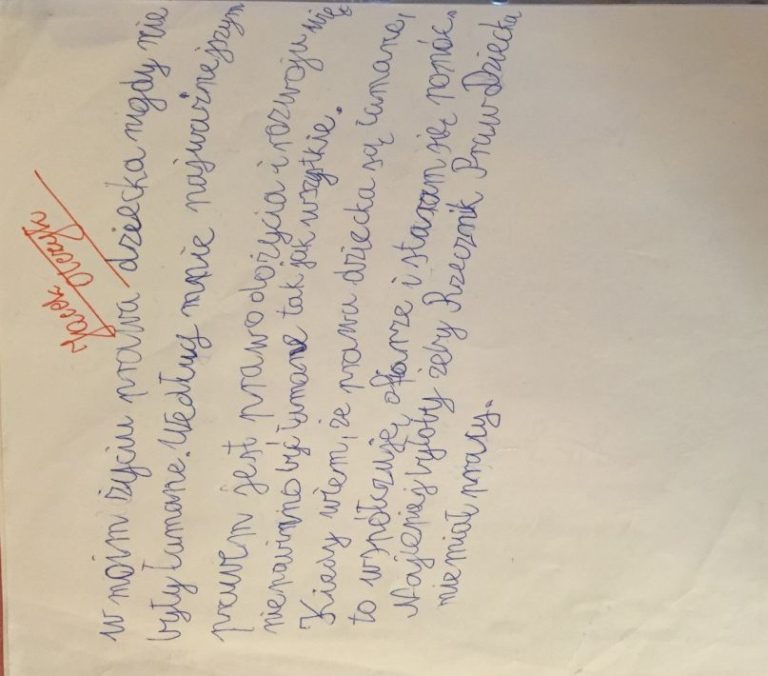 Jacek
w moim życiu prawa dziecka nigdy nie
były łamane. Według mnie najważniejszym
prawem jest prawo do życia i rozwoju nie
nie powinno być łamane tak jak wszytkie.
Kiedy wiem, że prawa dziecka są łamane,
to współczuję ofiarze i staram się pomóc.
Najlepiej byłoby żeby Rzecznik Praw Dziecka
nie miał pracy.